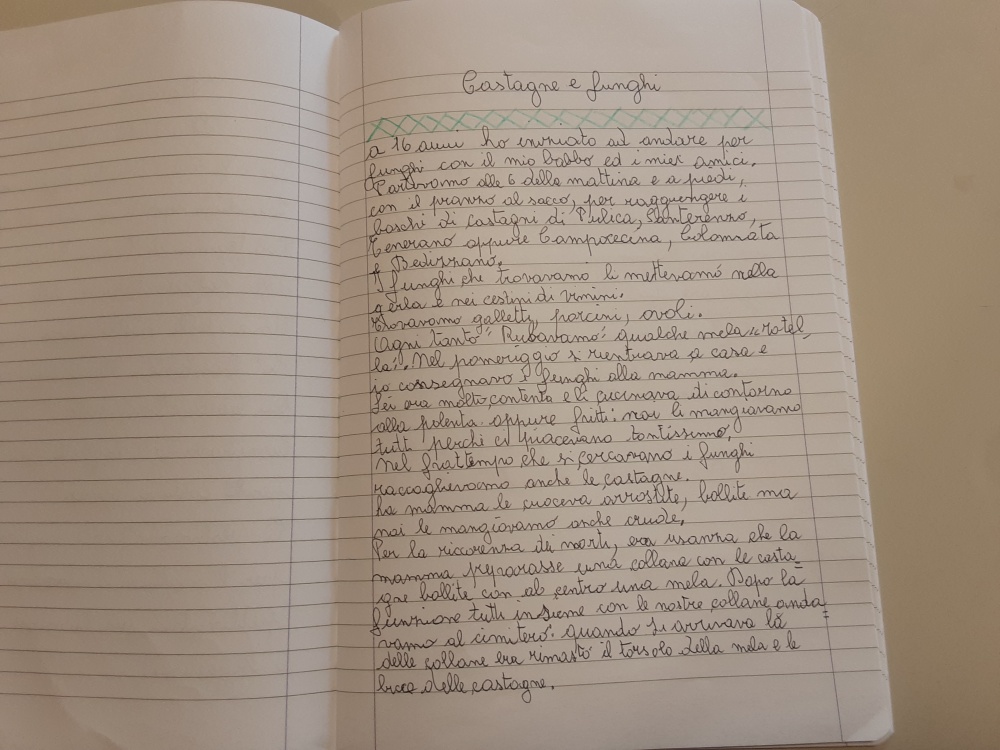 Castagne e funghi
a 16 anni ho iniziato ad andare per
funghi con il mio babbo ed i miei amici.
Partivamo alle 6 della mattina e a piedi,
con il pranzo al sacco, per raggiungere i
boschi di castagni di Pulica, Santerenzo,
Tenerano oppure Campocecina, Colonnata
e Bedizzano.
I funghi che trovavamo li mettevamo nella
gerla e nei cestini di vimini.
trovavamo galletti, porcini, ovoli.
Ogni tanto "Rubavamo" qualche mela "rotel
la". Nel pomeriggio si rientrava a casa e
io consegnavo i funghi alla mamma.
Lei era molto contenta e li cucinava di contorno
alla polenta oppure fritti: noi li mangiavamo
tutti perchè ci piacevano tantissimo.
Nel frattempo che si cercavano i funghi
raccoglievamo anche le castagne.
La mamma le cuoceva arrostite, bollite ma
noi le mangiavamo anche crude.
Per la ricorenza dei morti, era usanza che la
mamma preparasse una collana con le casta-
gne bollite con al centro una mela. Dopo la
funzione tutti insieme con le nostre collane anda-
vamo al cimitero: quando si arrivava là
delle collane era rimasto il torsolo della mela e le
bucce delle castagne.